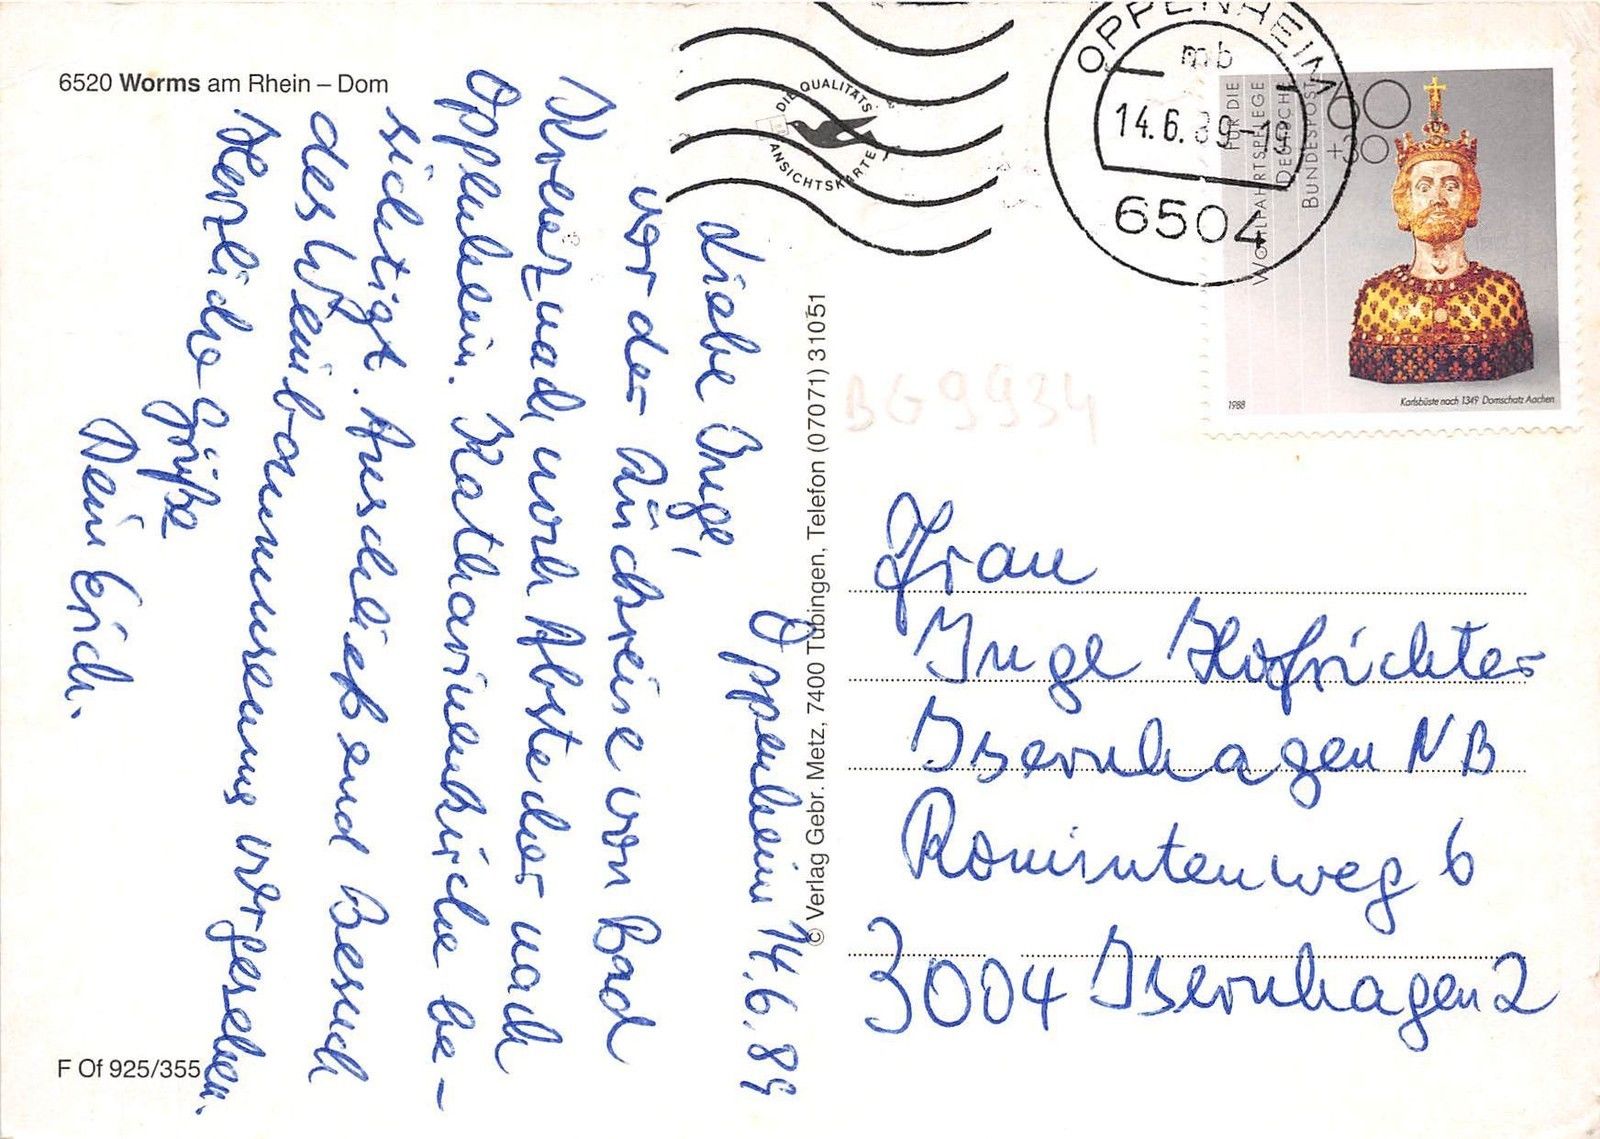 6520 Worms am Rhein – Dom
Oppenheim 14.6.89
Liebe Inge,
vor der Rückreise von Bad
Kreuznach noch Abstecher nach
Oppenheim. Katharinenkirche be-
sichtigt. Anschließend Besuch
des Weinbaumuseums vorgesehen.
Herzliche Grüße
Dein Erich.
F Of 925/355
© Verlag Gebr. Metz, 7400 Tübingen, Telefon (07071) 31051
DIE QUALITÄTS
ANSICHTSKARTE
OPPENHEIM
mb
14.6.89-18
6504
FÜR DIE
WOHLFAHRTSPFLEGE
DEUTSCHE
BUNDESPOST
60
+30
1988
Karlsbüste nach 1349 Domschatz Aachen
BG9934
Frau
Inge Hofrichter
Isernhagen NB
Romintenweg 6
3004 Isernhagen 2